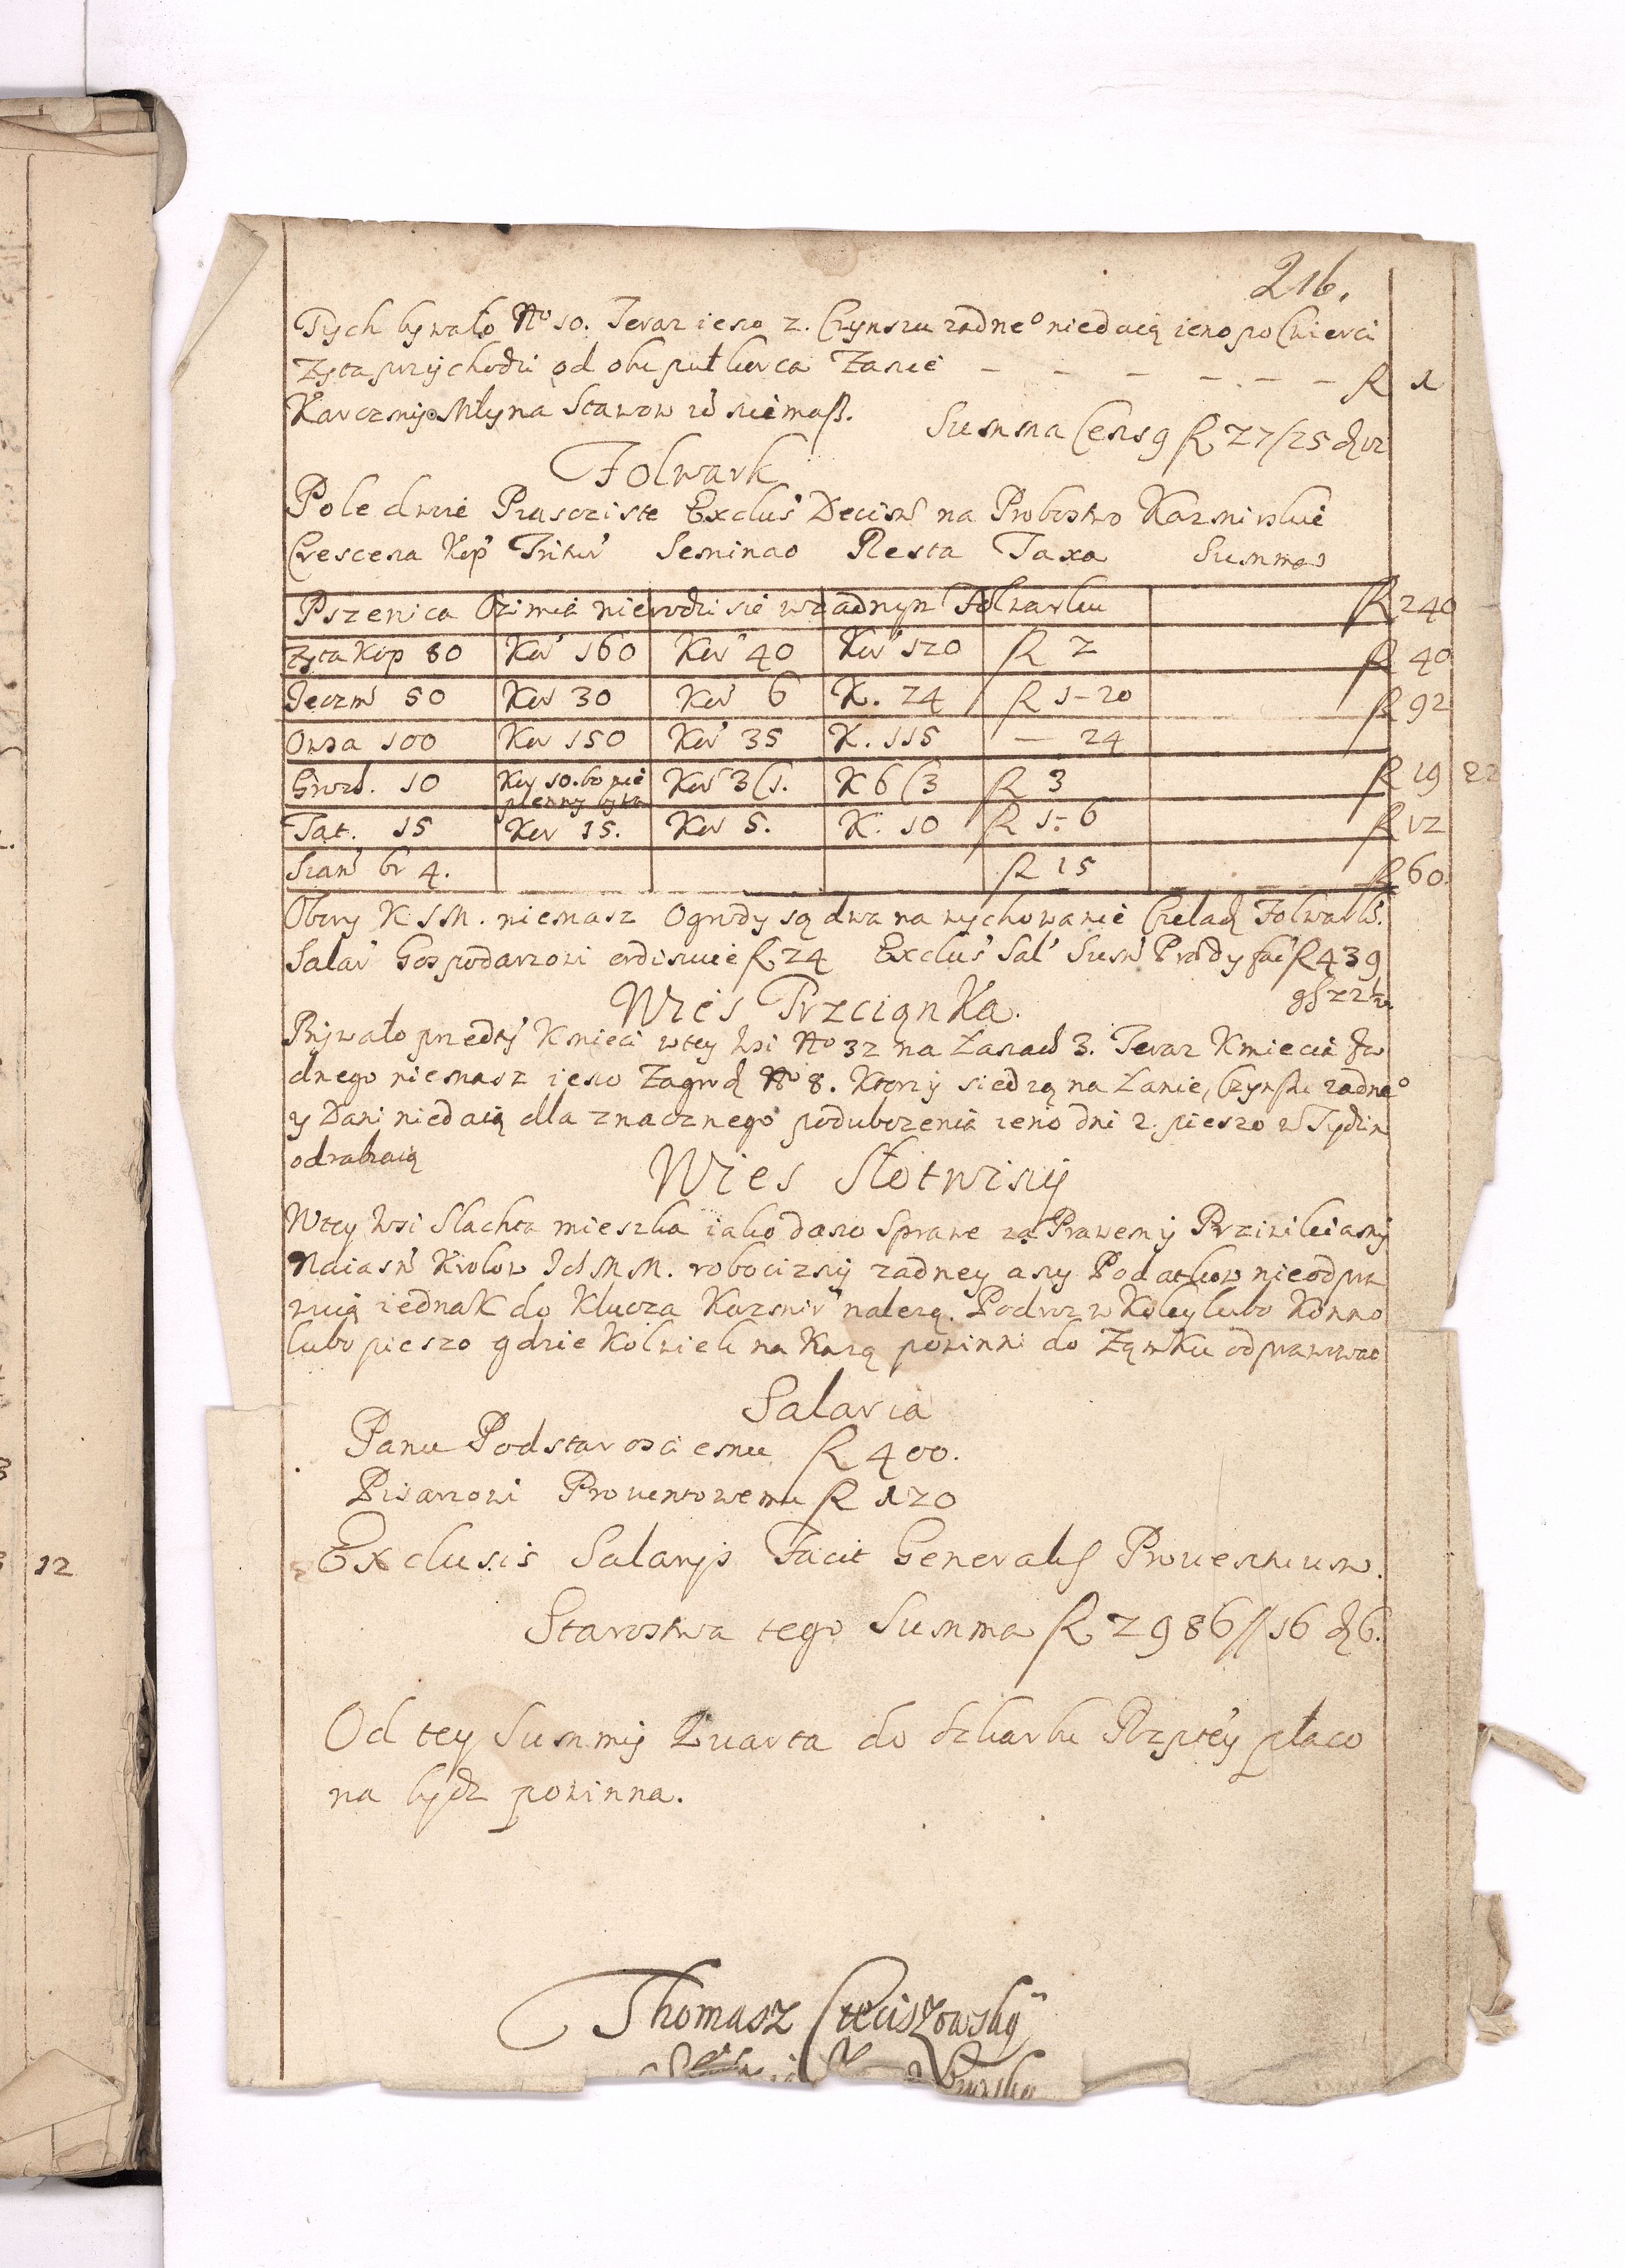 216.
Tych bywało No 10. Teraz ieso 2. Czynszu zadneo niedaią ieno po Cwierci
Zyta przychodzi od obu puł korca Zasie — — — — — — fl 1
Karczmy Młyna Stawow niemasz. Summa Cens9 fl 27/25 d 12
Folwark
Pole dwie Piascziste Exclus Decim na Probostwo Kazmirskie
Crescena Kop Tritur Seminao Resta Taxa Summa
Pszenica Ozimia nierodzi sie wzadnym Folwarku fl 240
Zyta Kop 80 Kor 160 Kor 40 Kor 120 fl 2 fl 40
Jeczm 50 Kor 30 Kor 6 K. 24 fl 1-20 fl 92
Owsa 100 Kor 150 Kor 35 K. 115 — 24
Groch. 10 Kor 10. bo nie plenny była Kor 3(1. K 6(3 fl 3 fl 19 22
Tat. 15 Kor 15. Kor 5. K. 10 fl 1-6 fl 12
Sian br 4. fl 15 fl 60
Obory K J M. niemasz Ogrody są dwa na wychowanie Czeladz Folwark.
Salar Gospodarzowi ordinuie fl 24 Exclus Sal Sum Prdy fac fl 439
gs 22 1/2
Wies Trzcianka.
Bywało przedty Kmieci wtey Wsi No 32 na Łanach 3. Teraz Kmiecia Je
dnego niemasz ieso Zagrod No 8. Ktorzy siedzą na Łanie, Czynszu zadneo
y Dani niedaią dla znacznego podubozenia ieno dni 2. pieszo w Tydzin
odrabiaią
Wies Słotwiny
Wtey Wsi Slachta mieszka iako dano Sprawe za Prawem y Prziwileiamy
Naiasn Krolow Ich M M. robocizny zadney any Podatkow nieodpra
wuią iednak do Klucza Kazmir nalezą. Podroz w Koley lubo Konno
lubo pieszo gdzie Kolwiek na Kazą powinni do Zamku odprawowac
Salaria
Panu Podstarosciemu fl 400.
Pisarzowi Prouentowemu fl 120
Exclusis Salarijs Facit Generalis Prouentuum.
Starostwa tego Summa fl 2986//16 d 6.
Od tey Summy Quarta do Szkarbu Rzptey płaco
na bydz powinna.
Thomasz
12